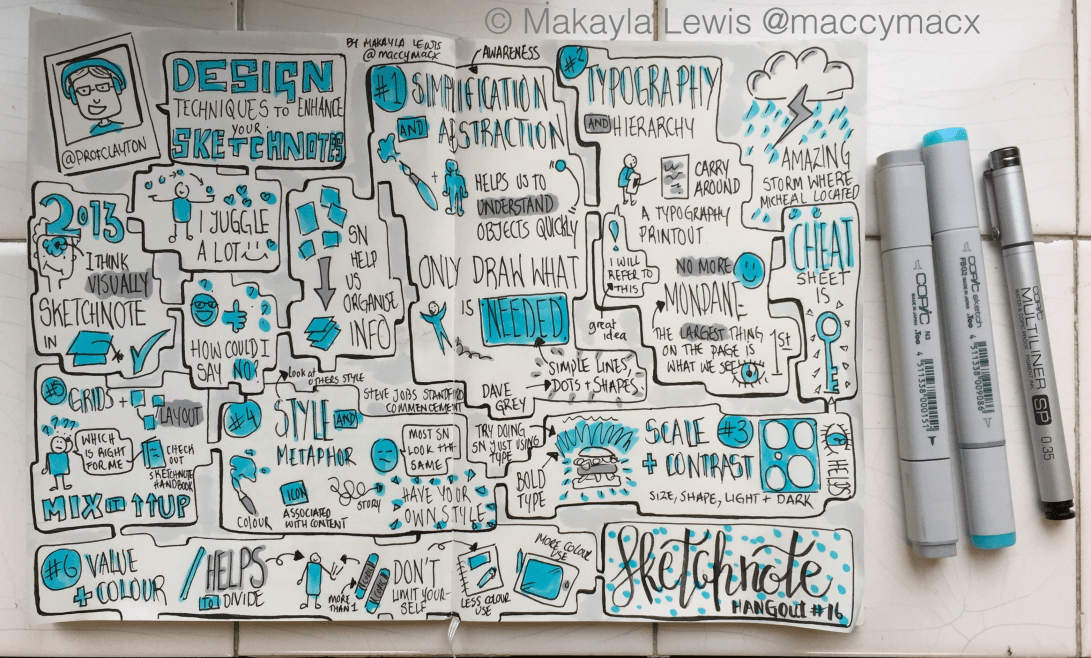 © Makayla Lewis @maccymacx
@PROFCLAYTON
DESIGN
TECHNIQUES TO ENHANCE
YOUR
SKETCHNOTES
BY MAKAYLA LEWIS
@maccymacx
2013
I THINK
VISUALLY
SKETCHNOTE
IN
I JUGGLE
A LOT
HOW COULD I
SAY NO?
SN
HELP
US
ORGANISE
INFO
AWARENESS
#1 SIMPLIFICATION
AND ABSTRACTION
HELPS US TO
UNDERSTAND
OBJECTS QUICKLY
ONLY DRAW WHAT
IS NEEDED
SIMPLE LINES,
DOTS + SHAPES
DAVE
GREY
great
idea
#2
TYPOGRAPHY
AND HIERARCHY
CARRY
AROUND
A TYPOGRAPHY
PRINTOUT
I WILL
REFER TO
THIS
NO MORE
MONDANE
THE LARGEST THING
ON THE PAGE IS
WHAT WE SEE
1st
AMAZING
STORM WHERE
MICHEAL LOCATED
CHEAT
SHEET
IS
SCALE #3
+ CONTRAST
SIZE, SHAPE, LIGHT + DARK
BOLD
TYPE
TRY DOING
SN JUST USING
TYPE
Look at
OTHERS STYLE
#4 STYLE AND
METAPHOR
STEVE JOBS STANDFORD
COMMENCEMENT
MOST SN
LOOK THE
SAME
COLOUR
ICON
ASSOCIATED
WITH CONTENT
STORY
HAVE YOUR
OWN STYLE
GRIDS +
LAYOUT
????
WHICH
IS RIGHT
FOR ME
CHECK
OUT
SKETCHNOTE
HANDBOOK
MIX IT UP
#6 VALUE
+ COLOUR
HELPS
TO DIVIDE
MORE
THAN 1
DON'T
LIMIT YOUR-
SELF
LESS COLOUR
USE
MORE COLOUR
USE
Sketchnote
HANGOUT #16
COPIC
N3
COPIC sketch
.Too
4511338009086
COPIC
MULTILINER SP
0.35